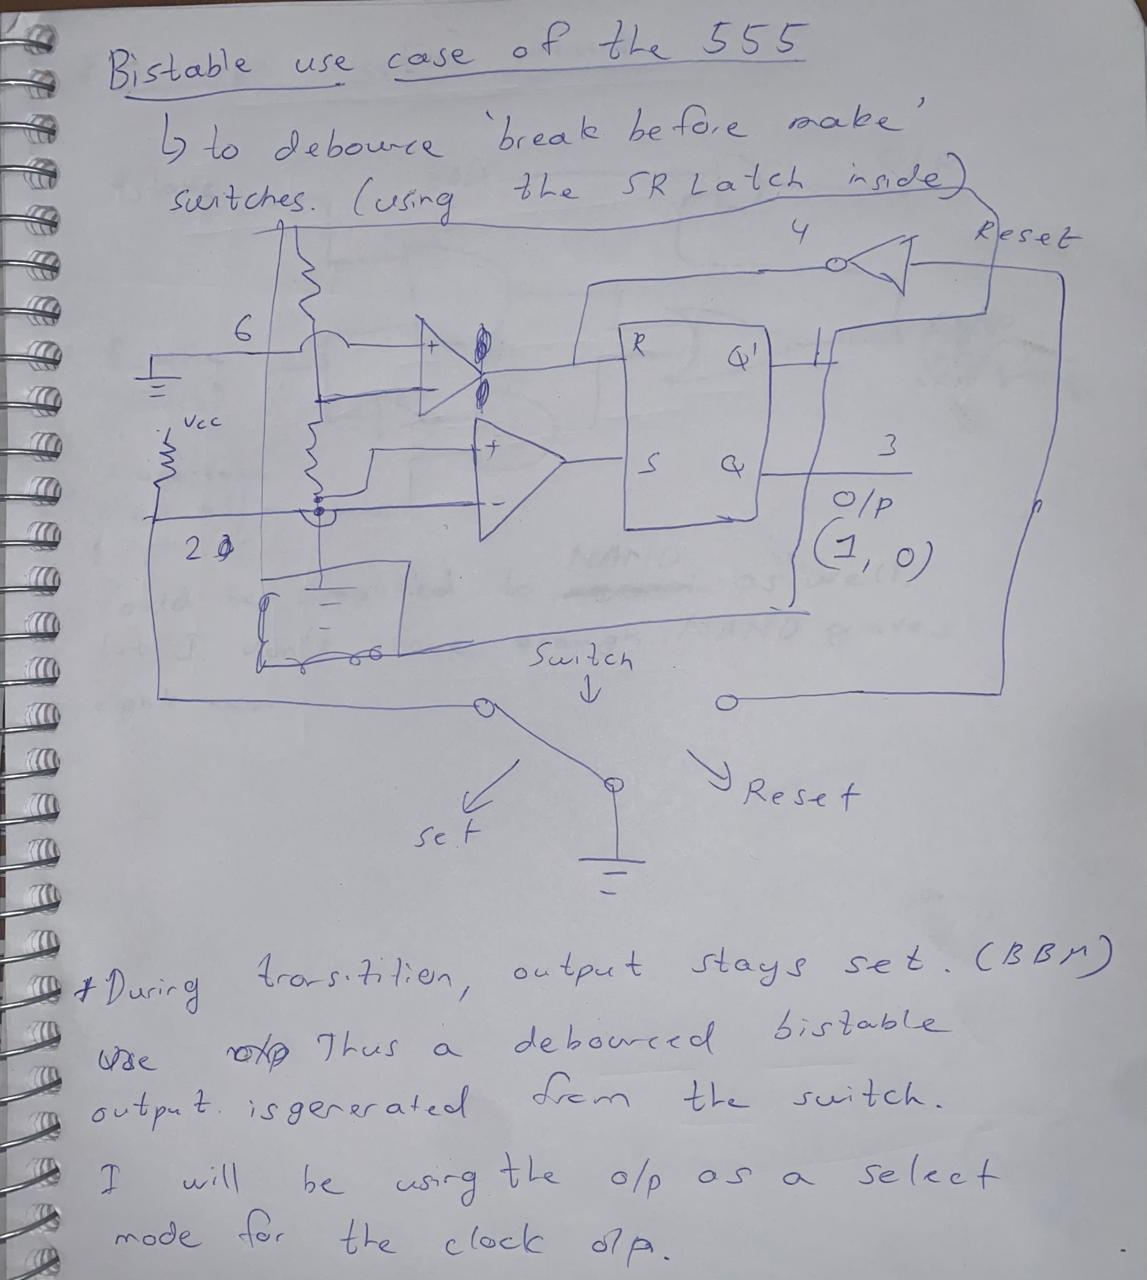 Bistable use case of the 555
↳ to debounce 'break before make'
switches. (using the SR Latch inside)
4
Reset
6
+
-
R
Q'
Vcc
+
-
S
Q
3
O/P
(1, 0)
2
Switch
↓
set
Reset
* During transition, output stays set. (BBM)
Thus a debounced bistable
output is generated from the switch.
I will be using the o/p as a select
mode for the clock o/p.